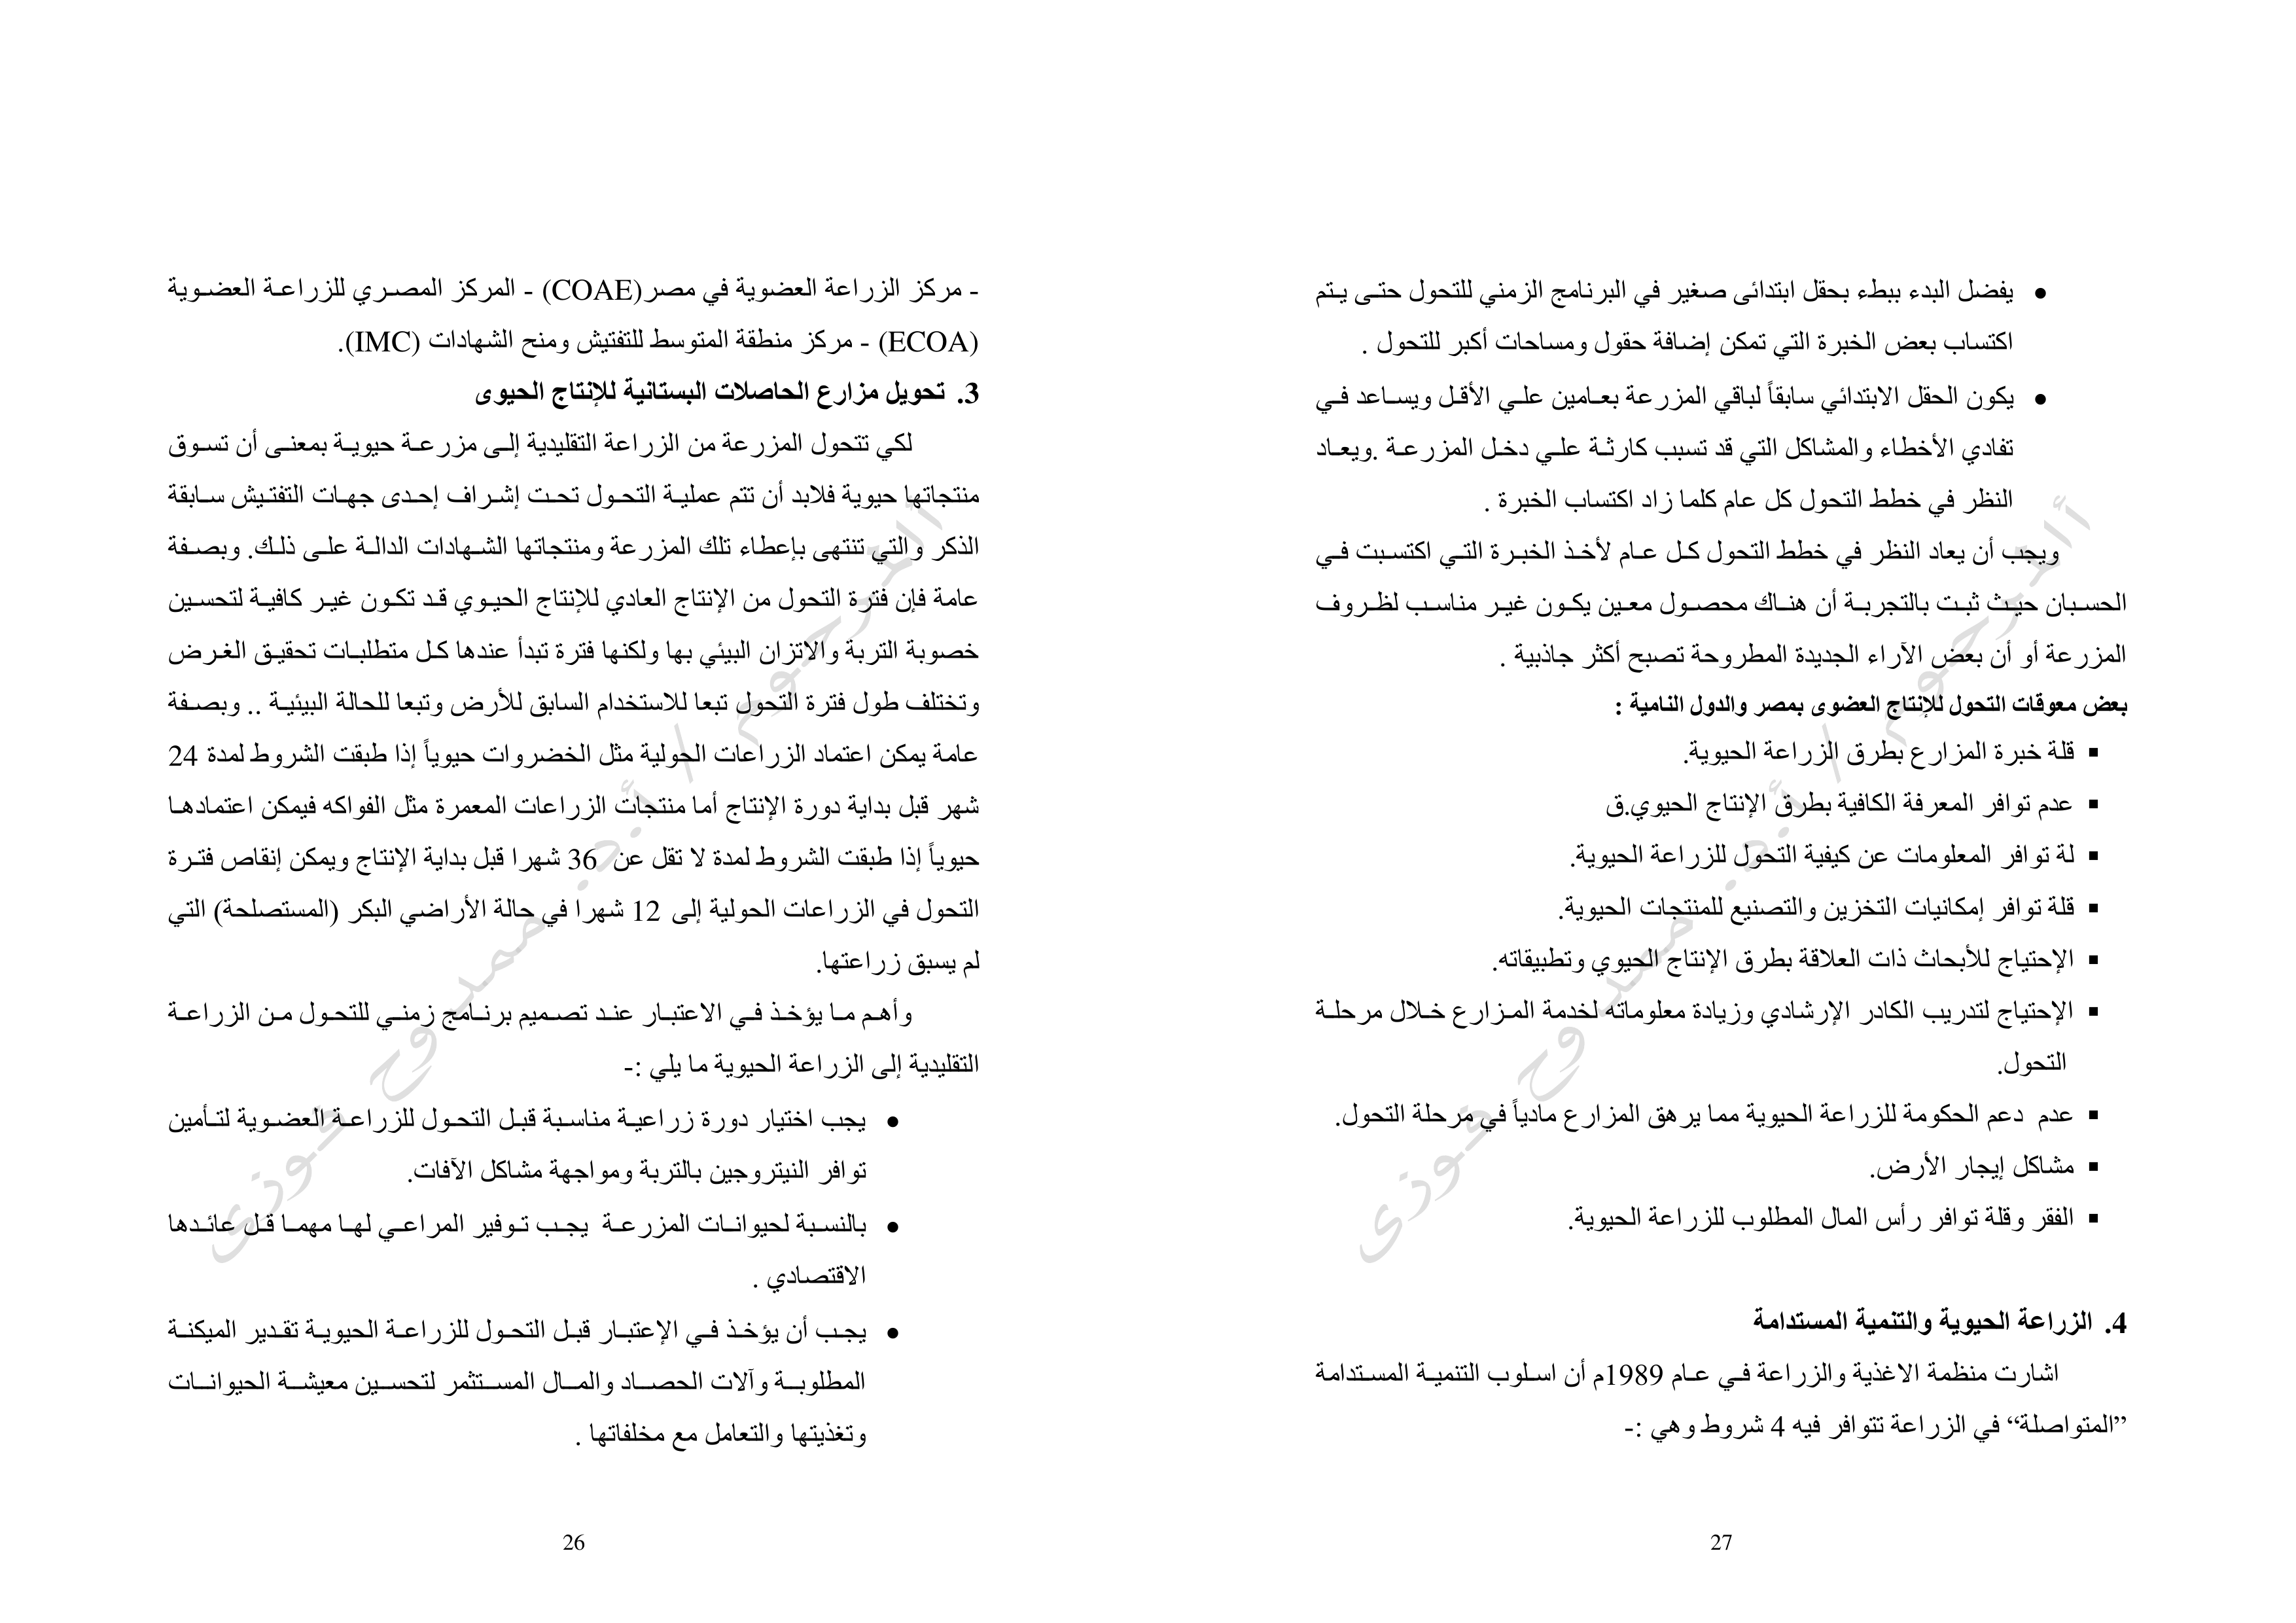 - مركز الزراعة العضوية في مصر(COAE) - المركز المصري للزراعة العضوية
(ECOA) - مركز منطقة المتوسط للتفتيش ومنح الشهادات (IMC).
3. تحويل مزارع الحاصلات البستانية للإنتاج الحيوى
لكي تتحول المزرعة من الزراعة التقليدية إلى مزرعة حيوية بمعنى أن تسوق
منتجاتها حيوية فلابد أن تتم عملية التحول تحت إشراف إحدى جهات التفتيش سابقة
الذكر والتي تنتهى بإعطاء تلك المزرعة ومنتجاتها الشهادات الدالة على ذلك. وبصفة
عامة فإن فترة التحول من الإنتاج العادي للإنتاج الحيوي قد تكون غير كافية لتحسين
خصوبة التربة والاتزان البيئي بها ولكنها فترة تبدأ عندها كل متطلبات تحقيق الغرض
وتختلف طول فترة التحول تبعا للاستخدام السابق للأرض وتبعا للحالة البيئية .. وبصفة
عامة يمكن اعتماد الزراعات الحولية مثل الخضروات حيوياً إذا طبقت الشروط لمدة 24
شهر قبل بداية دورة الإنتاج أما منتجات الزراعات المعمرة مثل الفواكه فيمكن اعتمادها
حيوياً إذا طبقت الشروط لمدة لا تقل عن 36 شهرا قبل بداية الإنتاج ويمكن إنقاص فترة
التحول في الزراعات الحولية إلى 12 شهرا في حالة الأراضي البكر (المستصلحة) التي
لم يسبق زراعتها.
وأهم ما يؤخذ في الاعتبار عند تصميم برنامج زمني للتحول من الزراعة
التقليدية إلى الزراعة الحيوية ما يلي :-
• يجب اختيار دورة زراعية مناسبة قبل التحول للزراعة العضوية لتأمين
توافر النيتروجين بالتربة ومواجهة مشاكل الآفات.
• بالنسبة لحيوانات المزرعة يجب توفير المراعي لها مهما قل عائدها
الاقتصادي .
• يجب أن يؤخذ في الإعتبار قبل التحول للزراعة الحيوية تقدير الميكنة
المطلوبة وآلات الحصاد والمال المستثمر لتحسين معيشة الحيوانات
وتغذيتها والتعامل مع مخلفاتها .
26
المرحوم / أ.د. ممدوح فوزى
• يفضل البدء ببطء بحقل ابتدائى صغير في البرنامج الزمني للتحول حتى يتم
اكتساب بعض الخبرة التي تمكن إضافة حقول ومساحات أكبر للتحول .
• يكون الحقل الابتدائي سابقاً لباقي المزرعة بعامين علي الأقل ويساعد في
تفادي الأخطاء والمشاكل التي قد تسبب كارثة علي دخل المزرعة .ويعاد
النظر في خطط التحول كل عام كلما زاد اكتساب الخبرة .
ويجب أن يعاد النظر في خطط التحول كل عام لأخذ الخبرة التي اكتسبت في
الحسبان حيث ثبت بالتجربة أن هناك محصول معين يكون غير مناسب لظروف
المزرعة أو أن بعض الآراء الجديدة المطروحة تصبح أكثر جاذبية .
بعض معوقات التحول للإنتاج العضوى بمصر والدول النامية :
▪ قلة خبرة المزارع بطرق الزراعة الحيوية.
▪ عدم توافر المعرفة الكافية بطرق الإنتاج الحيوي.ق
▪ لة توافر المعلومات عن كيفية التحول للزراعة الحيوية.
▪ قلة توافر إمكانيات التخزين والتصنيع للمنتجات الحيوية.
▪ الإحتياج للأبحاث ذات العلاقة بطرق الإنتاج الحيوي وتطبيقاته.
▪ الإحتياج لتدريب الكادر الإرشادي وزيادة معلوماته لخدمة المزارع خلال مرحلة
التحول.
▪ عدم دعم الحكومة للزراعة الحيوية مما يرهق المزارع مادياً في مرحلة التحول.
▪ مشاكل إيجار الأرض.
▪ الفقر وقلة توافر رأس المال المطلوب للزراعة الحيوية.
4. الزراعة الحيوية والتنمية المستدامة
اشارت منظمة الاغذية والزراعة في عام 1989م أن اسلوب التنمية المستدامة
”المتواصلة“ في الزراعة تتوافر فيه 4 شروط وهي :-
27
المرحوم / أ.د. ممدوح فوزى